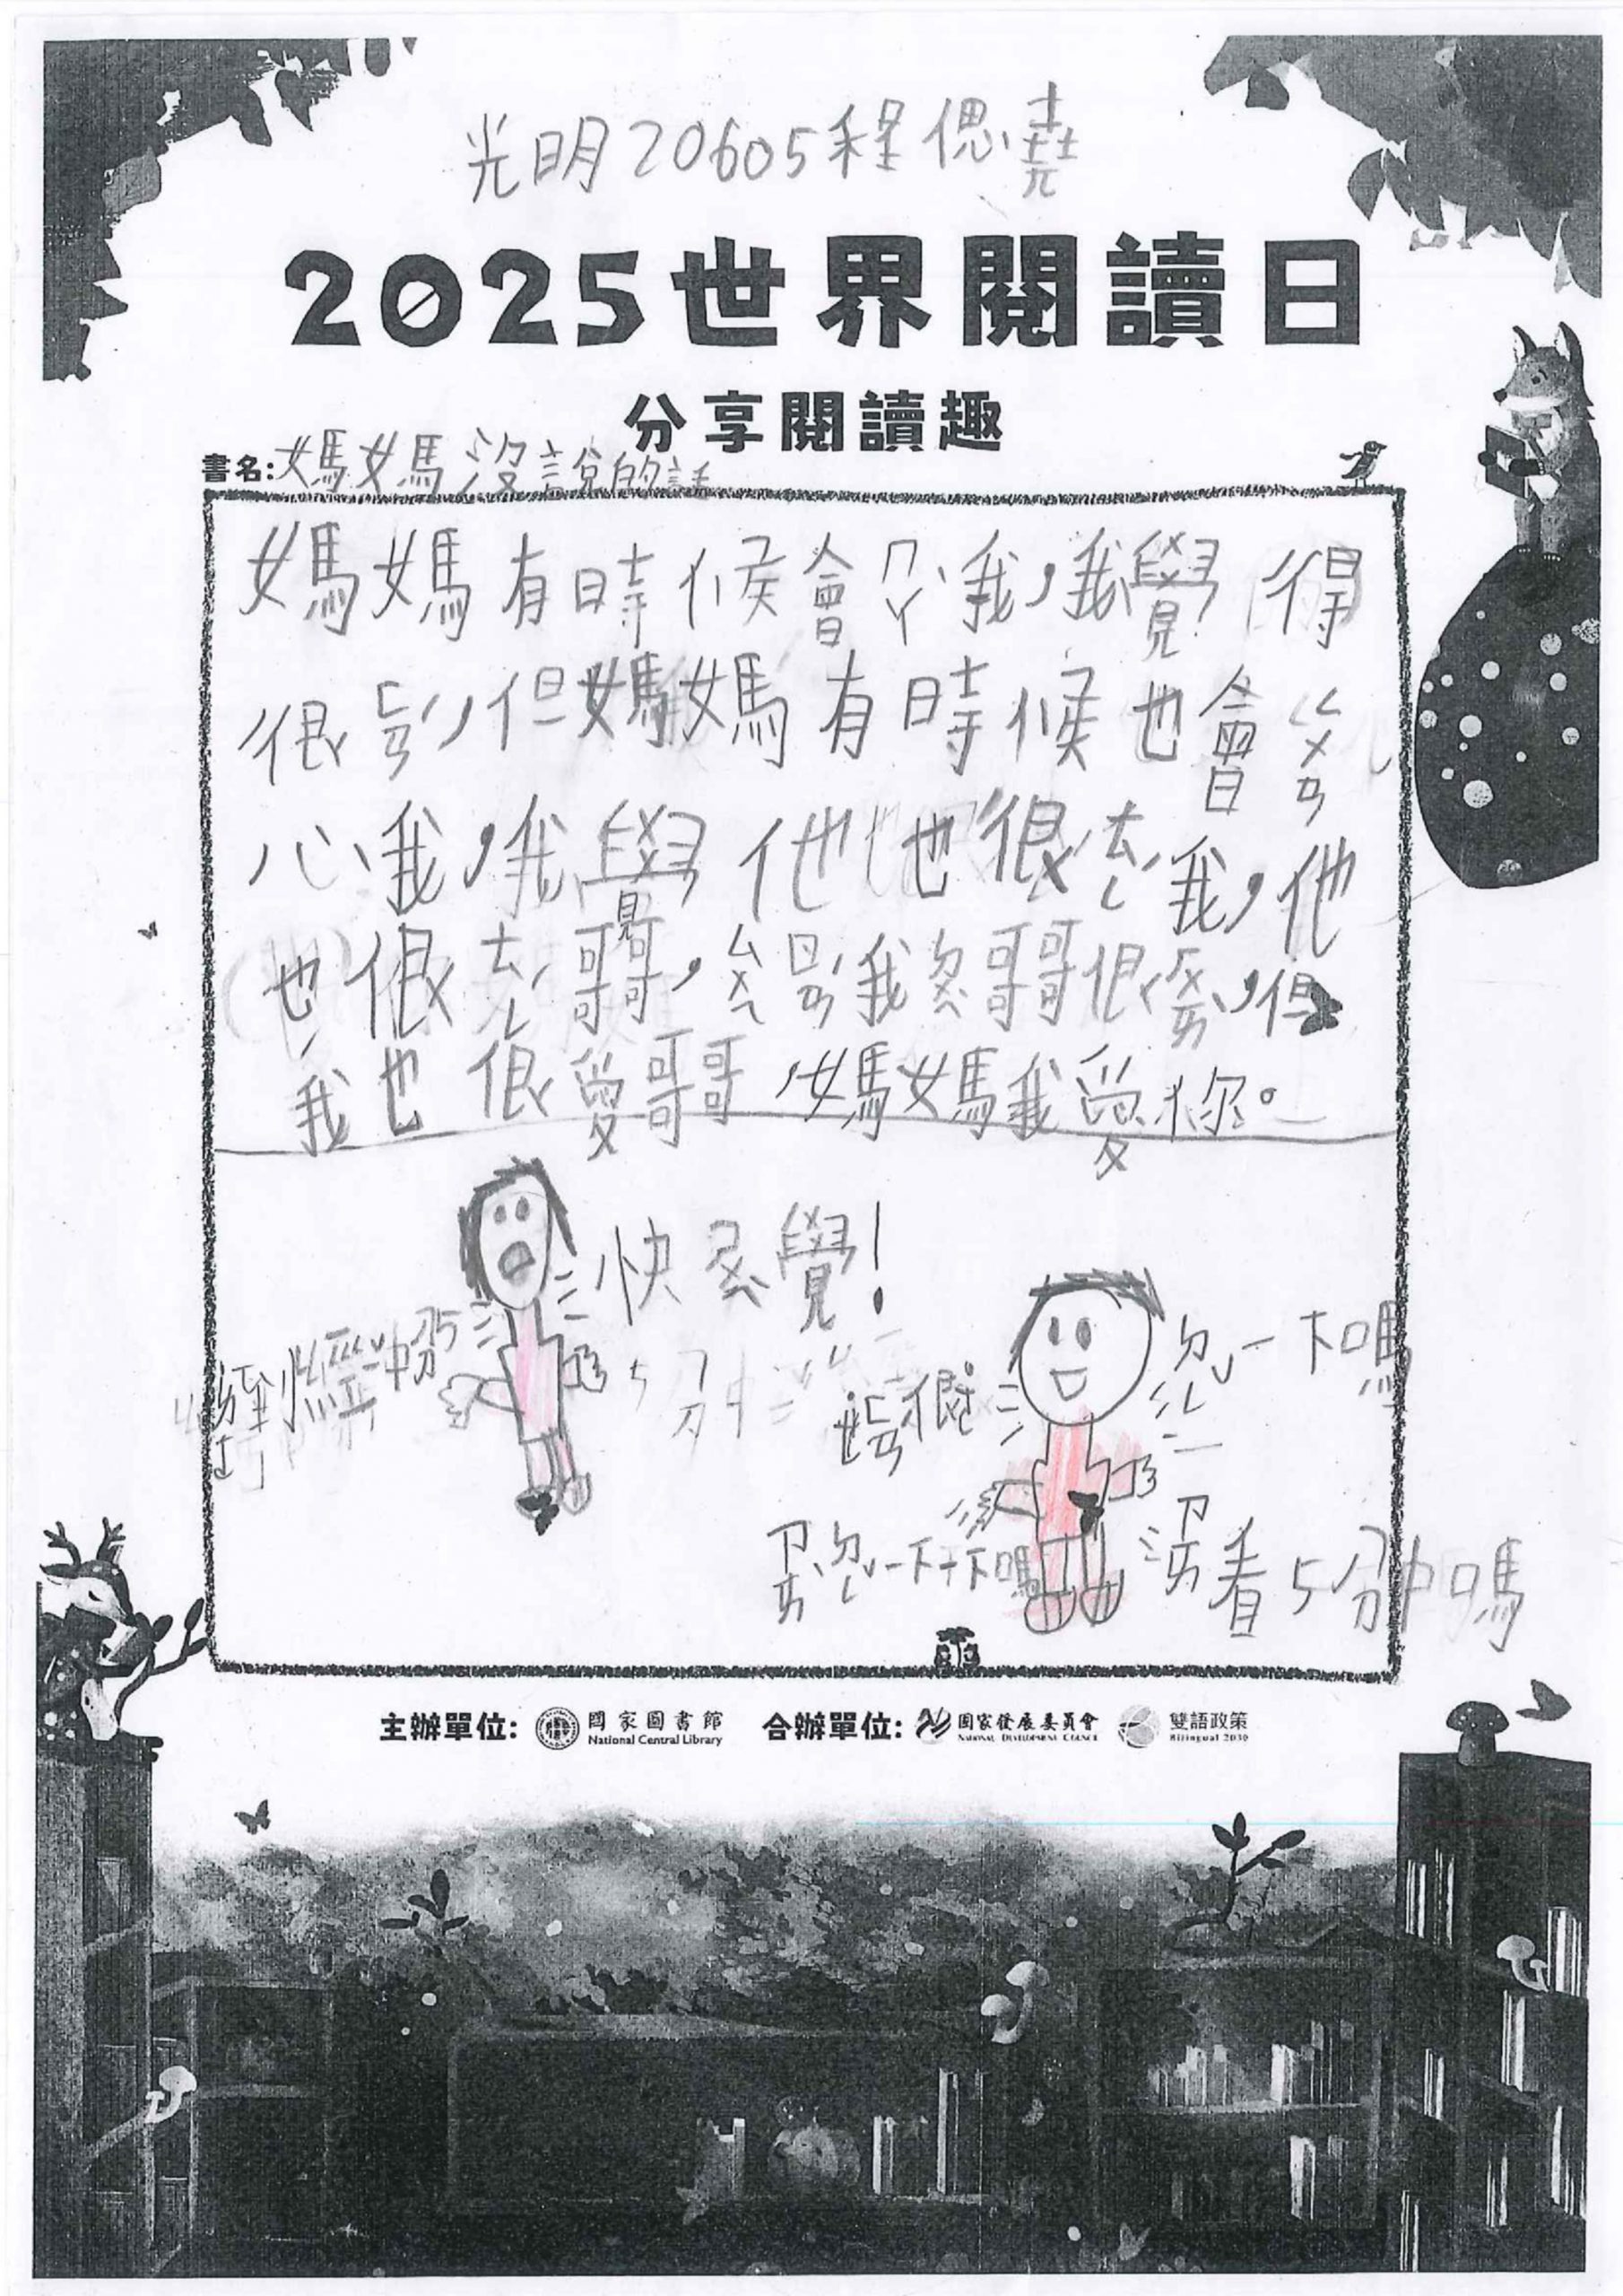 光明20605程偲堯
2025世界閱讀日
分享閱讀趣
書名:媽媽沒說的話
媽媽有時候會ㄇㄚˋ我,我覺得
很ㄈㄢˊ,但媽媽有時候也會ㄍㄨㄢ
心我,我覺他也很ㄊㄧˊ我,他
也很ㄊㄧˊ哥哥,ㄙㄨㄟ ㄖㄢˊ我 哥哥很 ,但
我也很愛哥哥,媽媽我愛你。
快 覺!
到 經 5
一下嗎
很
一下下嗎
看5分中嗎
主辦單位: 國家圖書館 合辦單位: 國家發展委員會 雙語政策
National Central Library NATIONAL DEVELOPMENT COUNCIL Bilingual 2030